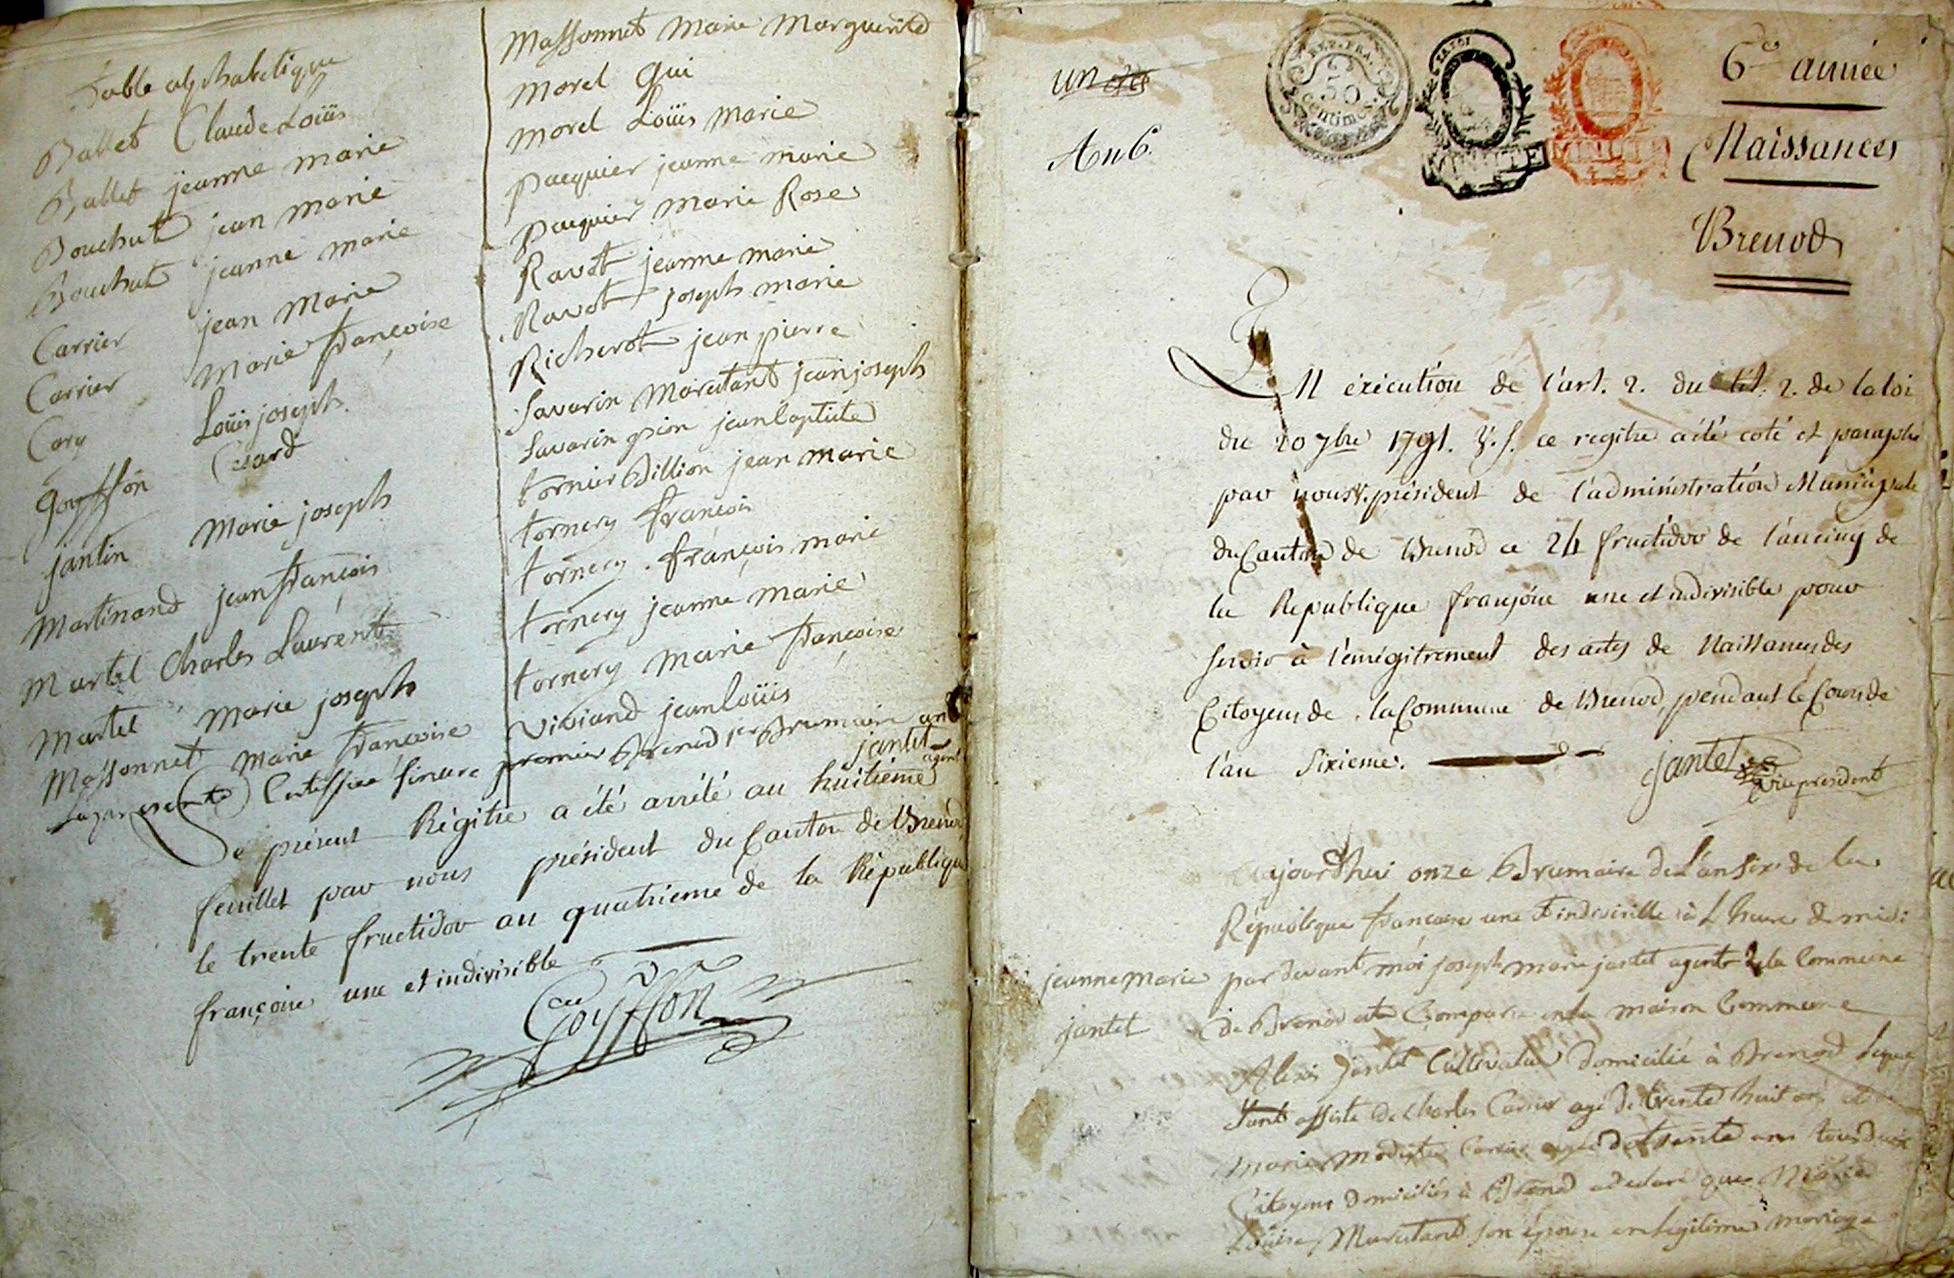 Table alphabetique
Ballet Claude Loüis
Ballet jeanne marie
Bouchut jean marie
Bouchut jeanne marie
Carrier jean Marie
Carrier Marie françoise
Cary Loüis joseph
Goyffon Cesard
jantin Marie joseph
Martinand jean françois
Martel Charles Laurent
Martel Marie joseph
Massonnet Marie françoise
Massonnet Marie Marguerite
Morel Gui
Morel Loüis Marie
pacquier jeanne marie
pacquier Marie Rose
Ravot jeanne marie
Ravot joseph marie
Richerot jean pierre
Savarin Marutant jean joseph
Savarin pion jean baptiste
tornier Billion jean marie
tornery françois
tornery françois marie
tornery jeanne marie
tornery Marie françoise
Viviand jean loüis
premier Brenod 1er Brumaire an
jantet
agent
Le présent Régitre a été arrété au huitième
feuillet par nous président du Canton de Brenod
le trente fructidor an quatrieme de la République
françoise une et indivisible
Goyffon
un
An 6.
REP. FRA.
50
centimes
LA LOI
6e année
Naissances
Brenod
En éxécution de l'art. 2. du tit. 2. de la loi
du 20 7bre 1791. V. S. ce regitre a été coté et paraphé
par nous président de l'administration Municipale
du Canton de Brenod ce 24 fructidor de l'an cinq de
la Republique françoise une et indivisible pour
servir à l'enregitrement des actes de Naissances des
Citoyens de la Commune de Brenod, pendant le Cours de
l'an Sixieme.
jantet
vice president
aujourdhui onze Brumaire de L'an six de la
Republique françoise une et indivisible à L'heure de midi
jeanne Marie
jantet
par devant moi joseph marie jantet agent de la Commune
de Brenod est Comparu en la maison Commune
Alexis Jantet Cultivateur domicilié à Brenod Lequel
assisté de Charles Carrier agé de trente huit ans et de
Marie Modeste Carrier agée de trente ans tous deux
Citoyens domiciliés à Brenod a declaré que Marie
Loüise Marutand son épouse en legitime mariage